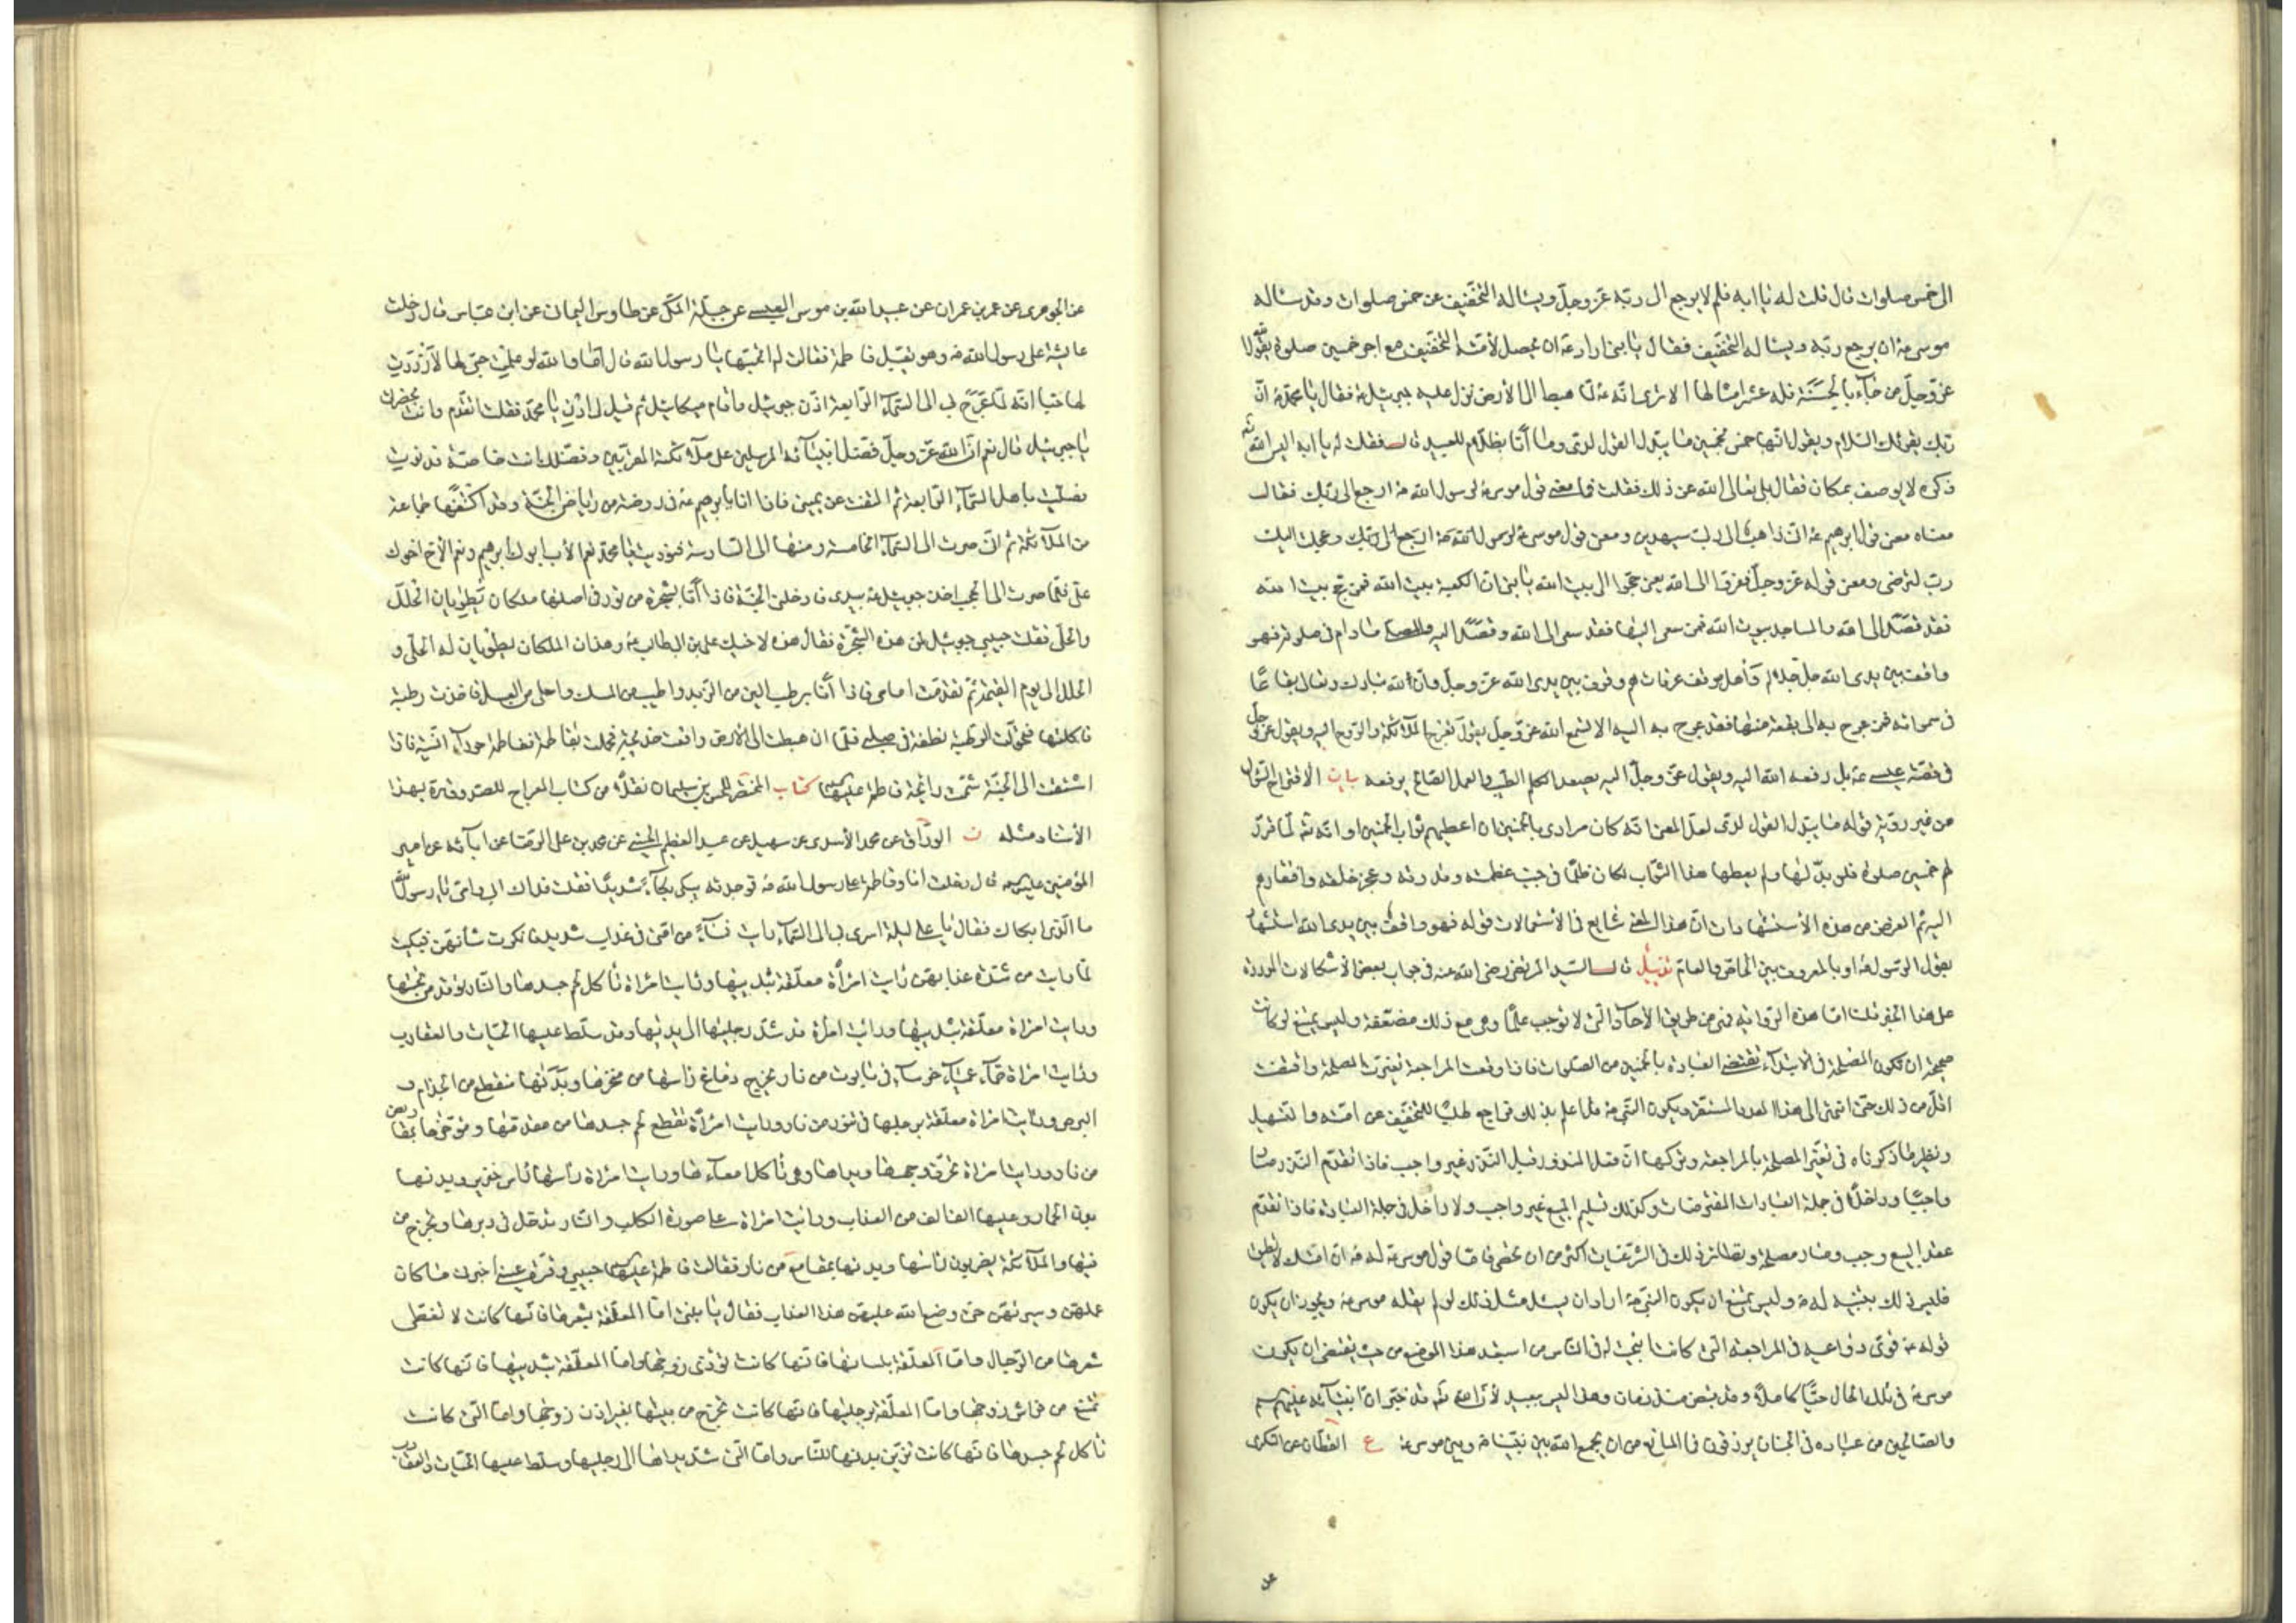 الى خمس صلوات قال قلت له يا ابه فلم لا يرجع الى ربه عز وجل ويساله التخفيف عن خمس صلوات وقد ساله
موسى ع ان يرجع ربه ويساله التخفيف فقال يا بنى اراد ع ان يحصل لأمته التخفيف مع اجر خمسين صلوة بقول الله
عز وجل من جآء بالحسنة فله عشر امثالها الا ترى انه ع لما هبط الى الأرض نزل عليه جبرئيل ع فقال يا محمد ان
ربك يقرئك السلام ويقول انها خمس بخمسين ما يبدل القول لدى وما أنا بظلام للعبيد قال فقلت له يا ابه اليس الله تع
ذكره لا يوصف بمكان فقال بلى تعالى الله عن ذلك فقلت فما معنى قول موسى ع لرسول الله ص ارجع الى ربك فقال
معناه معنى قول ابرهيم ع انى ذاهب الى ربى سيهدين ومعنى قول موسى ع وعجلت اليك
رب لترضى ومعنى قوله عز وجل ففروا الى الله يعنى حجوا الى بيت الله يا بنى ان الكعبة بيت الله فمن حج بيت الله
فقد قصد الى الله والمساجد بيوت الله فمن سعى اليها فقد سعى الى الله وقصد اليه والمصلى ما دام فى صلوته فهو
واقف بين يدى الله جل جلاله وأهل موقف عرفات هم وقوف بين يدى الله عز وجل وان لله تبارك وتعالى بقاعا
فى سمواته فمن عرج به الى بقعة منها فقد عرج به اليه الا تسمع الله عز وجل يقول تعرج الملآئكة والروح اليه ويقول عز وجل
فى قصة عيسى ع بل رفعه الله اليه ويقول عز وجل اليه يصعد الكلم الطيب والعمل الصالح يرفعه بيان الاقتراح السؤال
من غير روية قوله ما يبدل القول لدى لعل المعنى انه كان مرادى بالخمسين ان اعطيهم ثواب الخمسين او انه تع لما قرر
لهم خمسين صلوة فلو بدلها ولم يعطها هذا الثواب لكان ظلما فى جنب عظمته وقدرته وعجز خلقه وافتقارهم
اليه ثم الغرض من هذه الأستشهادات ان هذا المعنى شايع فى الأستعمالات قوله فهو واقف بين يدى الله استشهاد
بقول الرسول ع او بالمعروف بين الخاص والعام تذييل قال السيد المرتضى رضى الله عنه فى جواب بعض الأشكالات الموردة
على هذا الخبر قلنا اما هذه الرواية فهى من طريق الأحآد التى لا توجب علما وهى مع ذلك مضعفة وليس يمتنع لو كانت
صحيحة ان تكون المصلحة فى الابتدآء تقتضى العبادة بالخمسين من الصلوات فاذا وقعت المراجعة تغيرت المصلحة واقتضت
اقل من ذلك حتى انتهى الى هذا العدد المستقر ويكون النبى ص قد اعلم بذلك فراجع طلبا للتخفيف عن امته والتسهيل
ونظير ما ذكرناه فى تغير المصلحة بالمراجعة وتركها ان فعل المنذور قبل النذر غير واجب فاذا تقدم النذر صار
واجبا وداخلا فى جملة العبادات المفترضات وكذلك تسليم المبيع غير واجب ولا داخل فى جملة العبادة فاذا تقدم
عقد البيع وجب وصار مصلحة ونظائر ذلك فى الشرعيات اكثر من ان تحصى فاما قول موسى ع له ص ان امتك لا تطيق
فليس ذلك بتنبيه له ص وليس يمتنع ان يكون النبى ص اراد ان يسئل مثل ذلك لو لم يقله موسى ع ويجوز ان يكون
قوله ع قوى دواعيه فى المراجعة التى كانت ابيحت له وفى الناس من استبعد هذا الموضع من حيث يقتضى ان يكون
موسى ع فى تلك الحال حيا كاملا وقد قبض منذ زمان وهذا ليس ببعيد لأن الله تع قد خبر ان انبيآئه عليهم السلم
والصالحين من عباده فى الجنان يرزقون فما المانع من ان يجمع الله بين نبينا ص وبين موسى ع ع القطان عن السكرى
عن
عن الجوهرى عن عمر بن عمران عن عبيد الله بن موسى العبسى عن جبلة المكى عن طاوس اليمانى عن ابن عباس قال دخلت
عايشة على رسول الله ص وهو يقبل فاطمة فقالت له اتحبها يا رسول الله قال أما والله لو علمت حبى لها لأزددت
لها حبا انه لما عرج بى الى السمآء الرابعة اذن جبرئيل واقام ميكائيل ثم قيل لى ادن يا محمد فقلت اتقدم وانت بحضرتى
يا جبرئيل قال نعم ان الله عز وجل فضل انبيآئه المرسلين على ملآئكته المقربين وفضلك انت خاصة فدنوت
فصليت باهل السمآء الرابعة ثم التفت عن يمينى فاذا انا بابرهيم ع فى روضة من رياض الجنة وقد اكتنفها جماعة
من الملآئكة ثم انى صرت الى السمآء الخامسة ومنها الى السادسة فنوديت يا محمد نعم الأب ابوك ابرهيم ونعم الأخ اخوك
على فلما صرت الى الحجب اخذ جبرئيل ع بيدى فادخلنى الجنة فاذا أنا بشجرة من نور فى اصلها ملكان يطويان الحلل
والحلى فقلت حبيبى جبرئيل لمن هذه الشجرة فقال هذه لاخيك على بن ابيطالب ع وهذان الملكان يطويان له الحلى و
الحلل الى يوم القيمة ثم تقدمت امامى فاذا أنا برطب الين من الزبد واطيب من المسك واحلى من العسل فاخذت رطبة
فاكلتها فتحولت الرطبة نطفة فى صلبى فلما ان هبطت الى الأرض واقعت خديجة فحملت بفاطمة ففاطمة حورآء انسية فاذا
اشتقت الى الجنة شممت رائحة فاطمة عليها السلم كتاب المختصر للحسن بن سليمان نقلا من كتاب المعراج للصدوق ره بهذا
الأسناد مثله ن الوراق عن محمد الأسدى عن سهل عن عبد العظيم الحسنى عن محمد بن على الرضا عن ابآئه عن امير
المؤمنين عليهم السلم قال دخلت انا وفاطمة على رسول الله ص فوجدته يبكى بكآء شديدا فقلت فداك ابى وامى يا رسول الله
ما الذى ابكاك فقال يا على ليلة اسرى بى الى السمآء رايت نسآء من امتى فى عذاب شديد فانكرت شأنهن فبكيت
لما رايت من شدة عذابهن رأيت امرأة معلقة بثدييها ورايت امراة تأكل لحم جسدها والنار توقد من تحتها
ورايت امراة معلقة بثدييها ورايت امرأة قد شد رجليها الى يديها وقد سلط عليها الحيات والعقارب
ورأيت امراة صمآء عميآء خرسآء فى تابوت من نار يخرج دماغ راسها من منخرها وبدنها متقطع من الجذام و
البرص ورأيت امراة معلقة برجليها فى تنور من نار ورايت امرأة تقطع لحم جسدها من مقدمها ومؤخرها بمقاريض
من نار ورايت امراة تحرق وجهها ويداها وهى تأكل امعآءها ورايت امراة رأسها رأس خنزير وبدنها
بدن الحمار وعليها الف الف من العذاب ورايت امراة على صورة الكلب والنار تدخل فى دبرها وتخرج من
فيها والملآئكة يضربون رأسها وبدنها بمقامع من نار فقالت فاطمة عليها السلم حبيبى وقرة عينى اخبرنى ما كان
عملهن وسيرتهن حتى وضع الله عليهن هذا العذاب فقال يا بنتى اما المعلقة بشعرها فانها كانت لا تغطى
شعرها من الرجال واما المعلقة بلسانها فانها كانت تؤذى زوجها واما المعلقة بثدييها فانها كانت
تمتنع من فراش زوجها واما المعلقة برجليها فانها كانت تخرج من بيتها بغير اذن زوجها واما التى كانت
تأكل لحم جسدها فانها كانت تزين بدنها للناس واما التى شد يداها الى رجليها وسلط عليها الحيات والعقارب